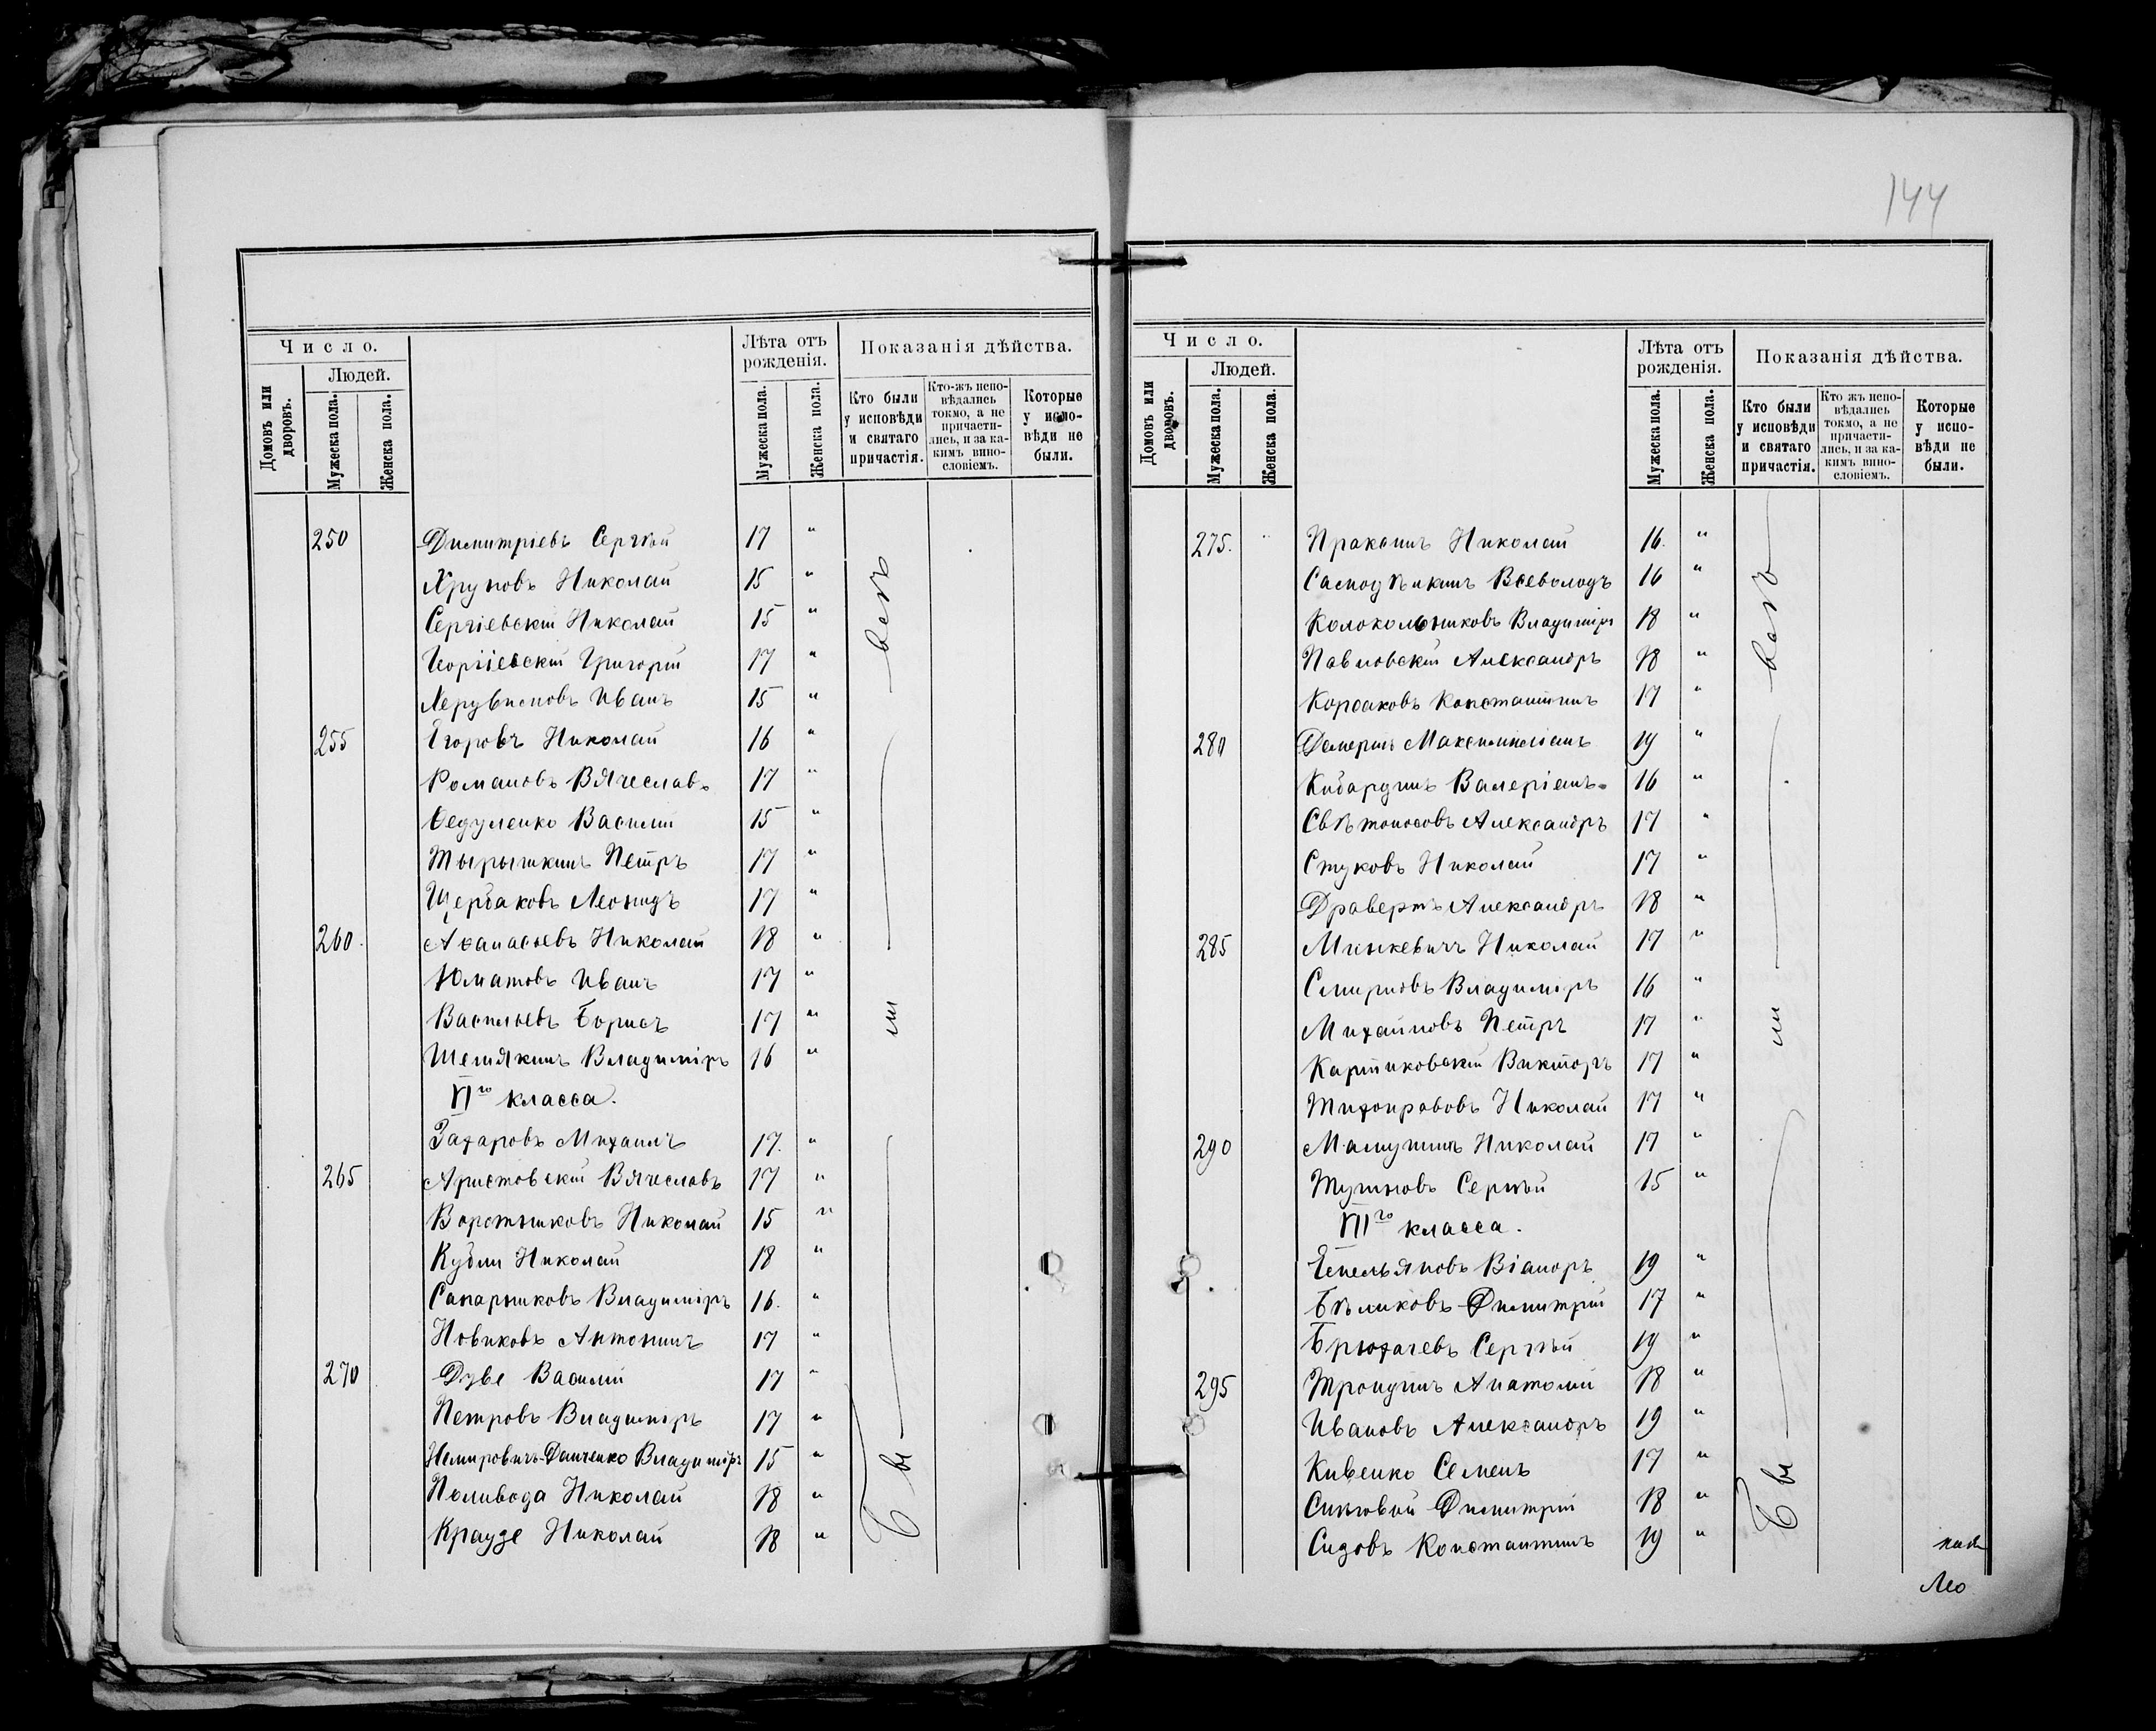 144
Число.
Людей.
Домовъ или дворовъ.
Мужеска пола.
Женска пола.
Лѣта отъ рожденія.
Мужеска пола.
Женска пола.
Показанія дѣйства.
Кто были у исповѣди и святаго причастія.
Кто-жъ исповѣдались токмо, а не причастились, и за какимъ винословіемъ.
Которые у исповѣди не были.
250 Димитріевъ Сергѣй 17 "
Хруновъ Николай 15 "
Сергіевскій Николай 15 "
Георгіевскій Григорій 17 "
Херувимовъ Иванъ 15 "
255 Егоровъ Николай 16 "
Романовъ Вячеславъ 17 "
Ѳедуленко Василий 15 "
Тырышкинъ Петръ 17 "
Щербаковъ Леонидъ 17 "
260 Аѳанасьевъ Николай 18 "
Юматовъ Иванъ 17 "
Васильевъ Борисъ 17 "
Шемякинъ Владиміръ 16 "
VI го класса.
Захаровъ Михаилъ 17. "
265 Аристовскій Вячеславъ 17 "
Воротниковъ Николай 15 "
Кубли Николай 18 "
Сапарниковъ Владиміръ 16. "
Новиковъ Антонинъ 17 "
270 Дубе Василій 17 "
Петровъ Владиміръ 17 "
Немировичъ-Данченко Владиміръ 15 "
Поливода Николай 18 "
Краузе Николай 18 "
Бы ли всѣ
Число.
Людей.
Домовъ или дворовъ.
Мужеска пола.
Женска пола.
Лѣта отъ рожденія.
Мужеска пола.
Женска пола.
Показанія дѣйства.
Кто были у исповѣди и святаго причастія.
Кто жъ исповѣдались токмо, а не причастились, и за какимъ винословіемъ.
Которые у исповѣди не были.
275. Праксинъ Николай 16. "
Всеволодъ 16 "
Колокольниковъ Владиміръ 18 "
Павловскій Александръ 18 "
Корсаковъ Константинъ 17 "
280 Максимиліанъ 19 "
Кибардинъ Валеріанъ 16 "
Свѣтоносовъ Александръ 17 "
Стуковъ Николай 17 "
Дравертъ Александръ 18 "
285 Минкевичъ Николай 17 "
Смирновъ Владиміръ 16 "
Михайловъ Петръ 17 "
Картиковскій Викторъ 17 "
Тихонравовъ Николай 17 "
290 Мамушинъ Николай 17 "
Тушновъ Сергѣй 15 "
VII го класса.
Емельяновъ Віаноръ 19 "
Бѣликовъ Димитрій 17 "
Брюхачевъ Сергѣй 19 "
295 Тронинъ Анатолій 18 "
Ивановъ Александръ 19 "
Кивенко Семенъ 17 "
Димитрій 18 "
Сидовъ Константинъ 19 "
Бы ли всѣ
Лео